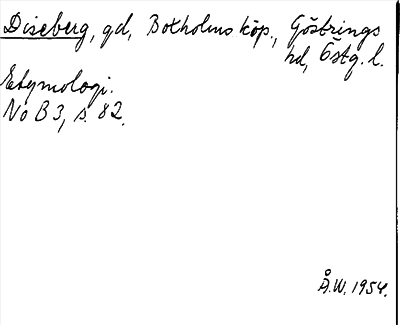 Diseberg, gd, Boxholms köp., Göstrings
hd, Östg. l.
Etymologi.
No B 3, s. 82.
Å.W. 1954.